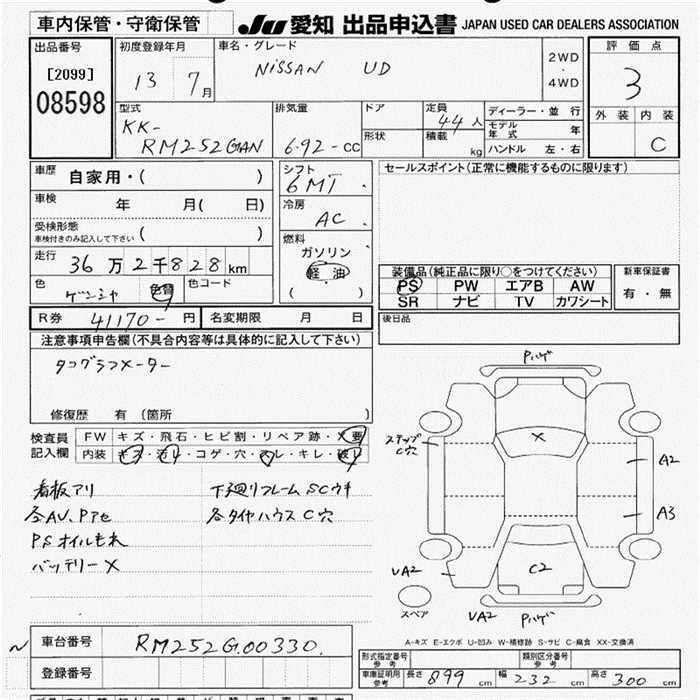 車内保管・守衛保管
JU 愛知 出品申込書 JAPAN USED CAR DEALERS ASSOCIATION
出品番号
[2099]
08598
初度登録年月
13 7月
車名・グレード
NISSAN UD
2WD
・
4WD
評価点
3
外装 内装
C
型式
KK-
RM252GAN
排気量
6.92-CC
ドア
形状
定員
44人
積載
kg
ディーラー・並行
モデル年式 年
ハンドル 左・右
車歴 自家用・( )
車検 年 月( 日)
受検形態
車検付きのみ記入して下さい ( )
走行 36万2千828km
色 ゲンシャ 色替 色コード
シフト
6MT
冷房
AC
燃料
ガソリン
軽油
( )
セールスポイント(正常に機能するものに限ります)
装備品(純正品に限り○をつけてください)
PS PW エアB AW
SR ナビ TV カワシート
新車保証書
有・無
R券 41170- 円
名変期限 月 日
後日品
注意事項申告欄(不具合内容等は具体的に記入して下さい)
タコグラフメーター
修復歴 有 (箇所 )
検査員
記入欄
FW キズ・飛石・ヒビ割・リペア跡・X要
内装 キズ・汚レ・コゲ・穴・スレ・キレ・破レ
看板アリ
各AV、Pアセ
PSオイルもれ
バッテリーX
下廻りフレームSCウキ
各タイヤハウスC穴
Pハゲ
ステップ
C穴
X
A2
A3
VA2
C2
スペア
VA2 Pハゲ
A-キズ E-エクボ U-凹み W-補修跡 S-サビ C-腐食 XX-交換済
車台番号 RM252G.00330.
登録番号
形式指定番号
参考
類別区分番号
参考
車庫証明用
参考
長さ 899 cm 幅 232 cm 高さ 300 cm